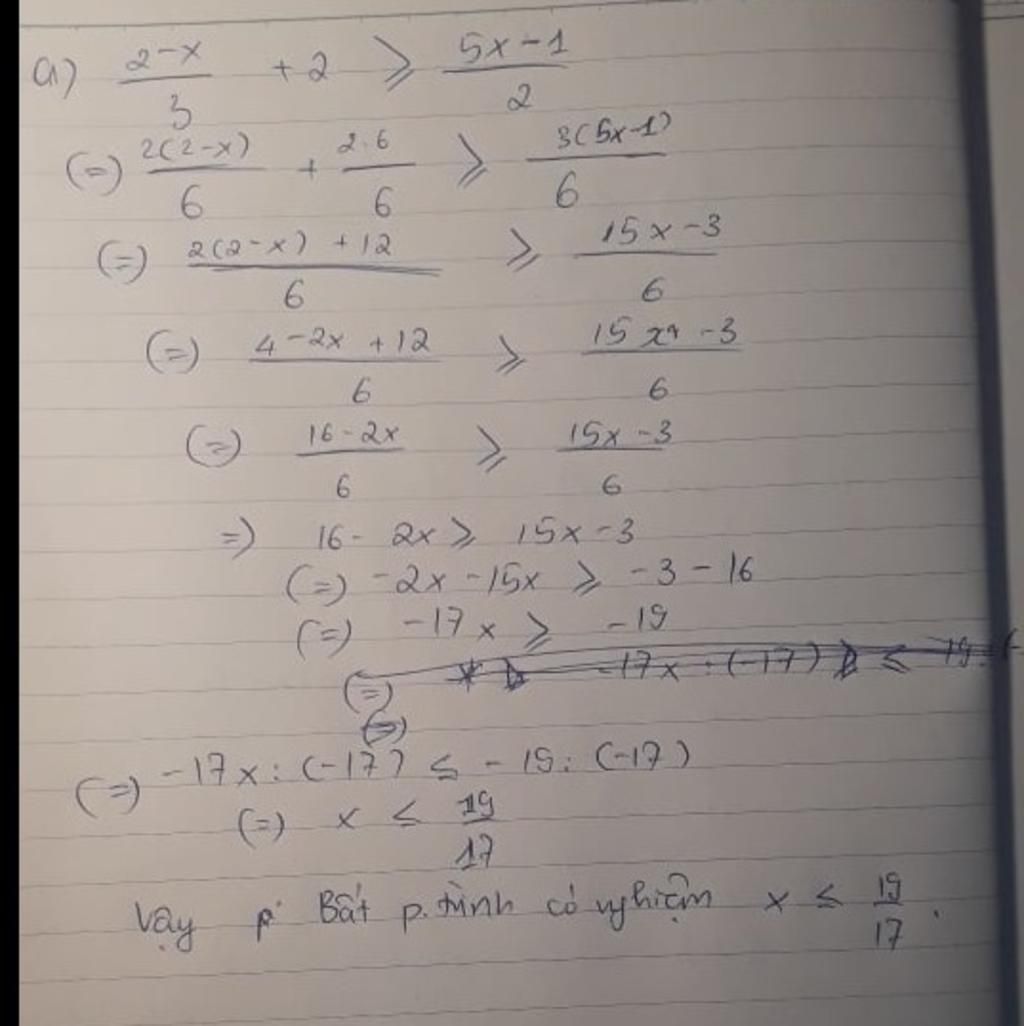 a) (2-x)/3 + 2 ≥ (5x-1)/2
(=) 2(2-x)/6 + 2.6/6 ≥ 3(5x-1)/6
(=) (2(2-x) + 12)/6 ≥ (15x-3)/6
(=) (4-2x+12)/6 ≥ (15x-3)/6
(=) (16-2x)/6 ≥ (15x-3)/6
=) 16-2x ≥ 15x-3
(=) -2x-15x ≥ -3-16
(=) -17x ≥ -19
(=) -17x : (-17) ≤ -19
(=)
(=) -17x : (-17) ≤ -19 : (-17)
(=) x ≤ 19/17
Vậy p Bất p.trình có nghiệm x ≤ 19/17.